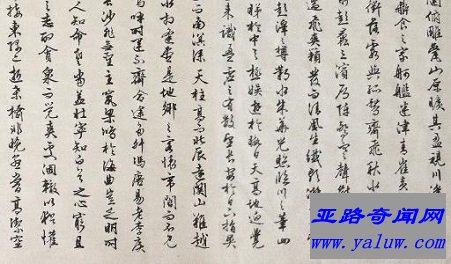 俯雕甍山原曠其盈視川澤
之家舸艦迷津青雀
區明落霞與孤鶩齊飛秋水
彭蠡之濱雁陣驚寒聲斷
遄飛爽籟發而清風生纖歌凝
彭澤之樽鄴水朱華光照臨川之筆四
睇眄於中天極娛遊於暇日天高地迥覺
悲來識盈虛之有數望長安於日下目吳
而南溟深天柱高而北辰遠關山難越
水相逢盡是他鄉之客懷帝閽而不見
乎時運不齊命途多舛馮唐易老李廣
長沙非無聖主竄梁鴻於海曲豈乏明時
人知命老當益壯寧知白首之心窮且
之志酌貪泉而覺爽處涸轍以猶懽
接東隅已逝桑榆非晚孟嘗高潔空
亚路奇闻网
www.yaluw.com